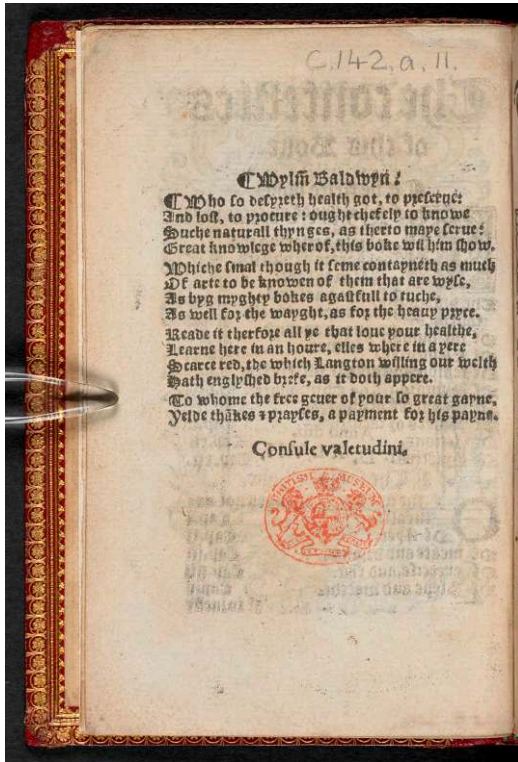 C.142.a.11.
❡Wylm̄ Baldwyn:
❡Who so desyreth health got, to preserue:
And lost, to procure: ought chefely to knowe
Suche naturall thynges, as therto maye serue:
Great knowlege wherof, this boke wil him show.
Whiche smal though it seme contayneth as much
Of arte to be knowen of them that are wyse,
As byg myghty bokes agastfull to tuche,
As well for the wayght, as for the heauy pryce.
Reade it therfore all ye that loue your healthe,
Learne here in an houre, elles where in a yere
Scarce red, the which Langton willing our welth
Hath englyshed brefe, as it doth appere.
To whome the free geuer of your so great gayne,
Yelde thākes & prayses, a payment for his payne.
Consule valetudini.
BRITISH MUSEUM